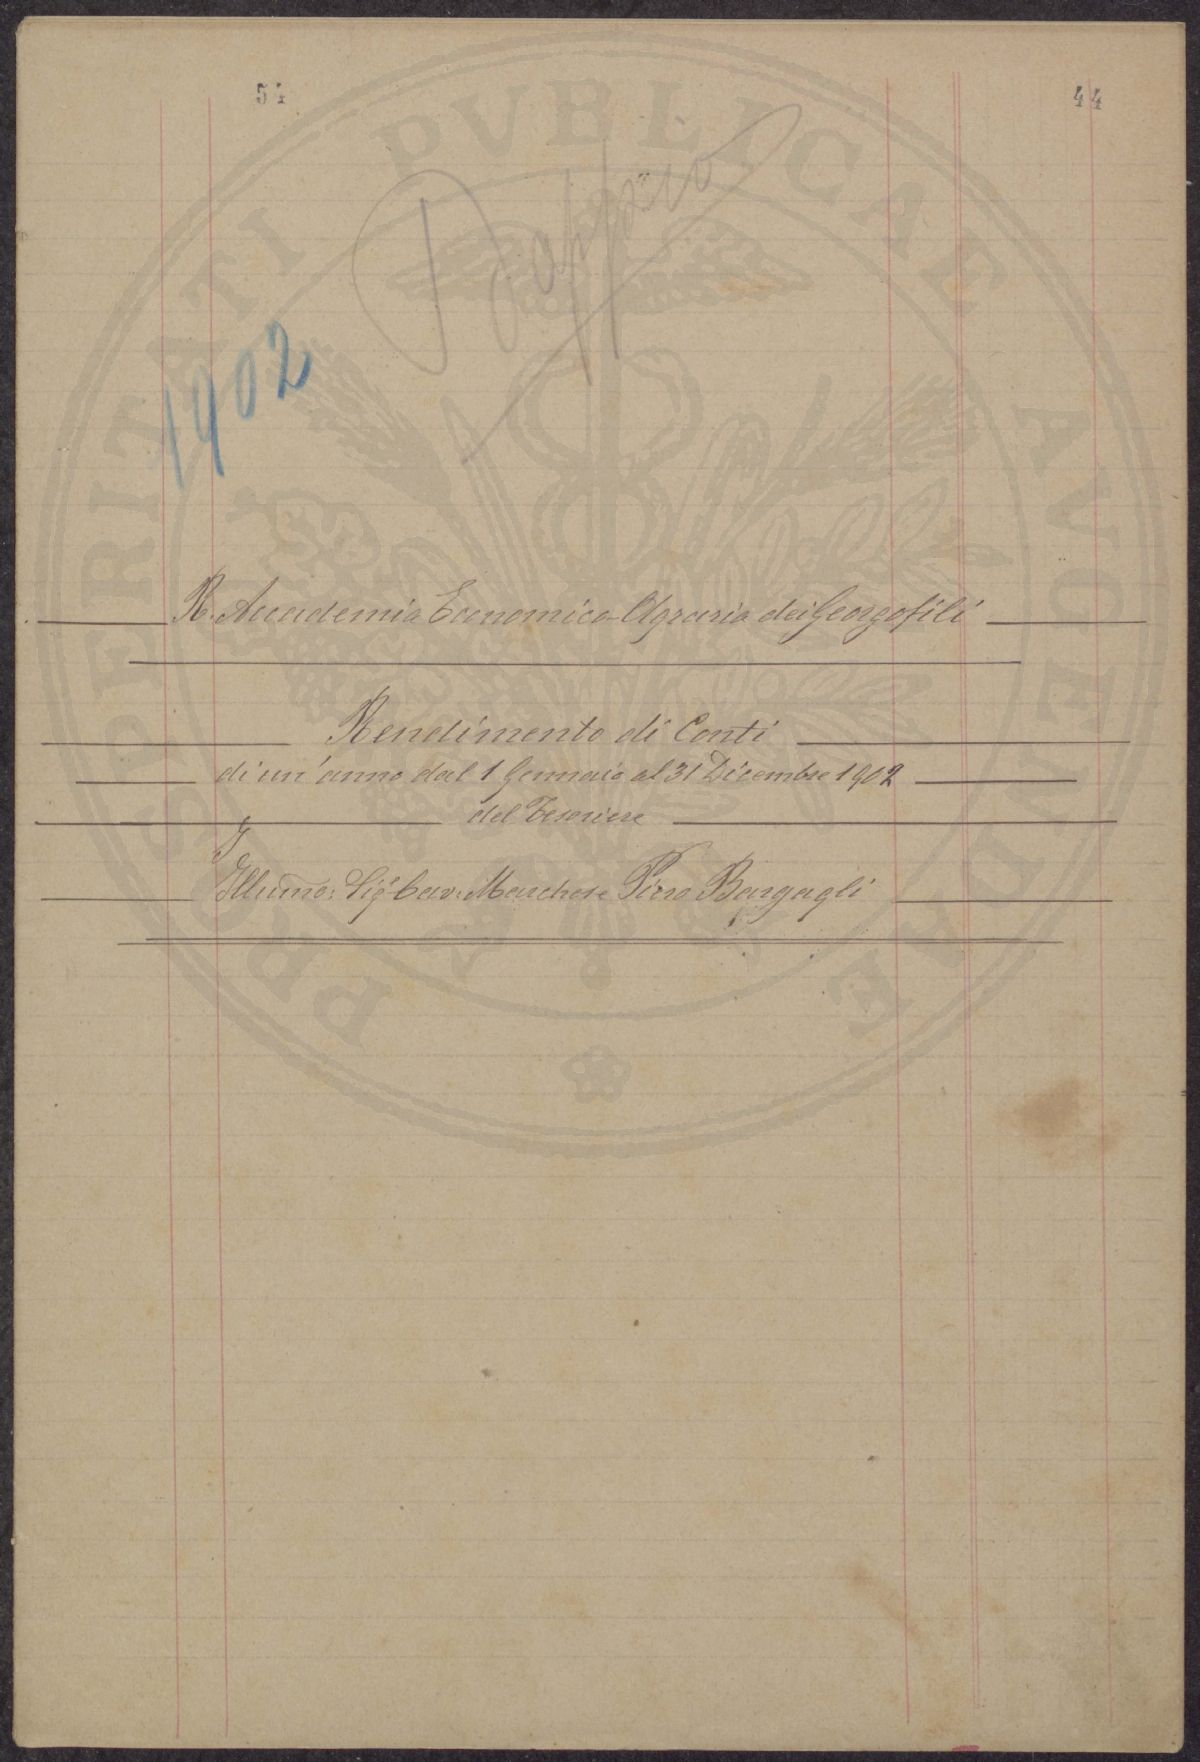 54
44
Doppio
1902
PROSPERITATI PVBLICAE AVGENDAE
R. Accademia Economico-Agraria dei Georgofili
Rendimento di Conti
di un'anno dal 1 Gennaio al 31 Dicembre 1902
del Tesoriere
Illumo: Sigr Cav: Marchese Piero Bargagli